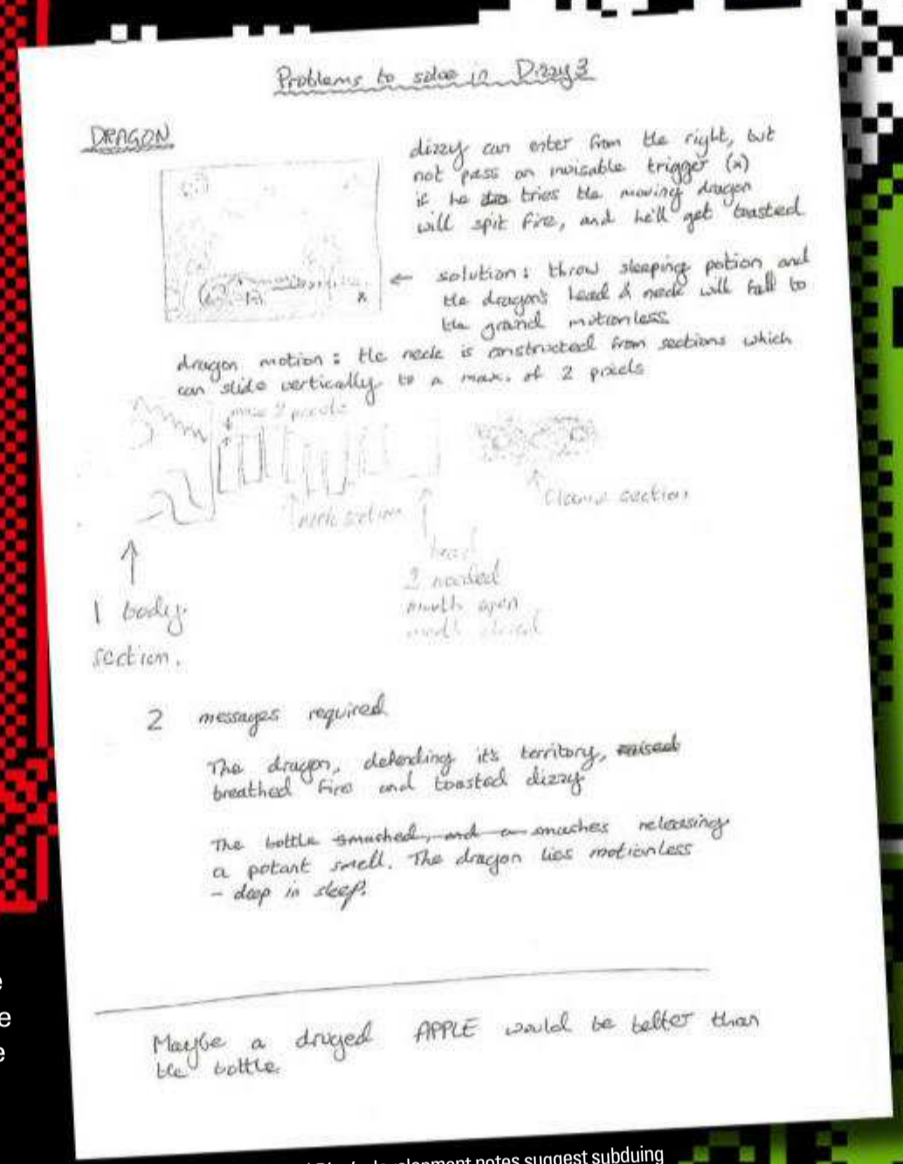 Problems to solve in Dizzy 3
DRAGON
dizzy can enter from the right, but
not pass an invisable trigger (x)
if he tries the moving dragon
will spit fire, and he'll get toasted
x
← solution: throw sleeping potion and
the dragons head & neck will fall to
the ground motionless
dragon motion: the neck is constructed from sections which
can slide vertically to a max. of 2 pixels
max 2 pixels
neck section
flame section
head
2 needed
mouth open
mouth closed
1 body
section.
2 messages required
The dragon, defending it's territory, raised
breathed fire and toasted dizzy
The bottle smashed, and a smashes releasing
a potant smell. The dragon lies motionless
- deep in sleep.
Maybe a druged APPLE would be better than
the bottle
development notes suggest subduing